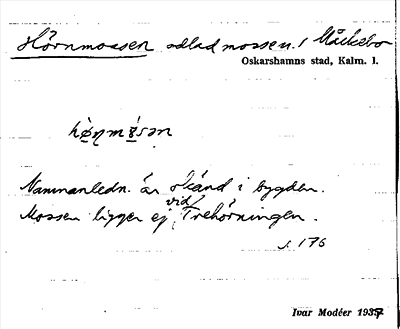 Hörnmossen odlad mossen. / Måckebo
Oskarshamns stad, Kalm. l.
Namnanledn. är okänd i bygden.
Mossen ligger ej vid Trehörningen.
s. 176
Ivar Modéer 1937